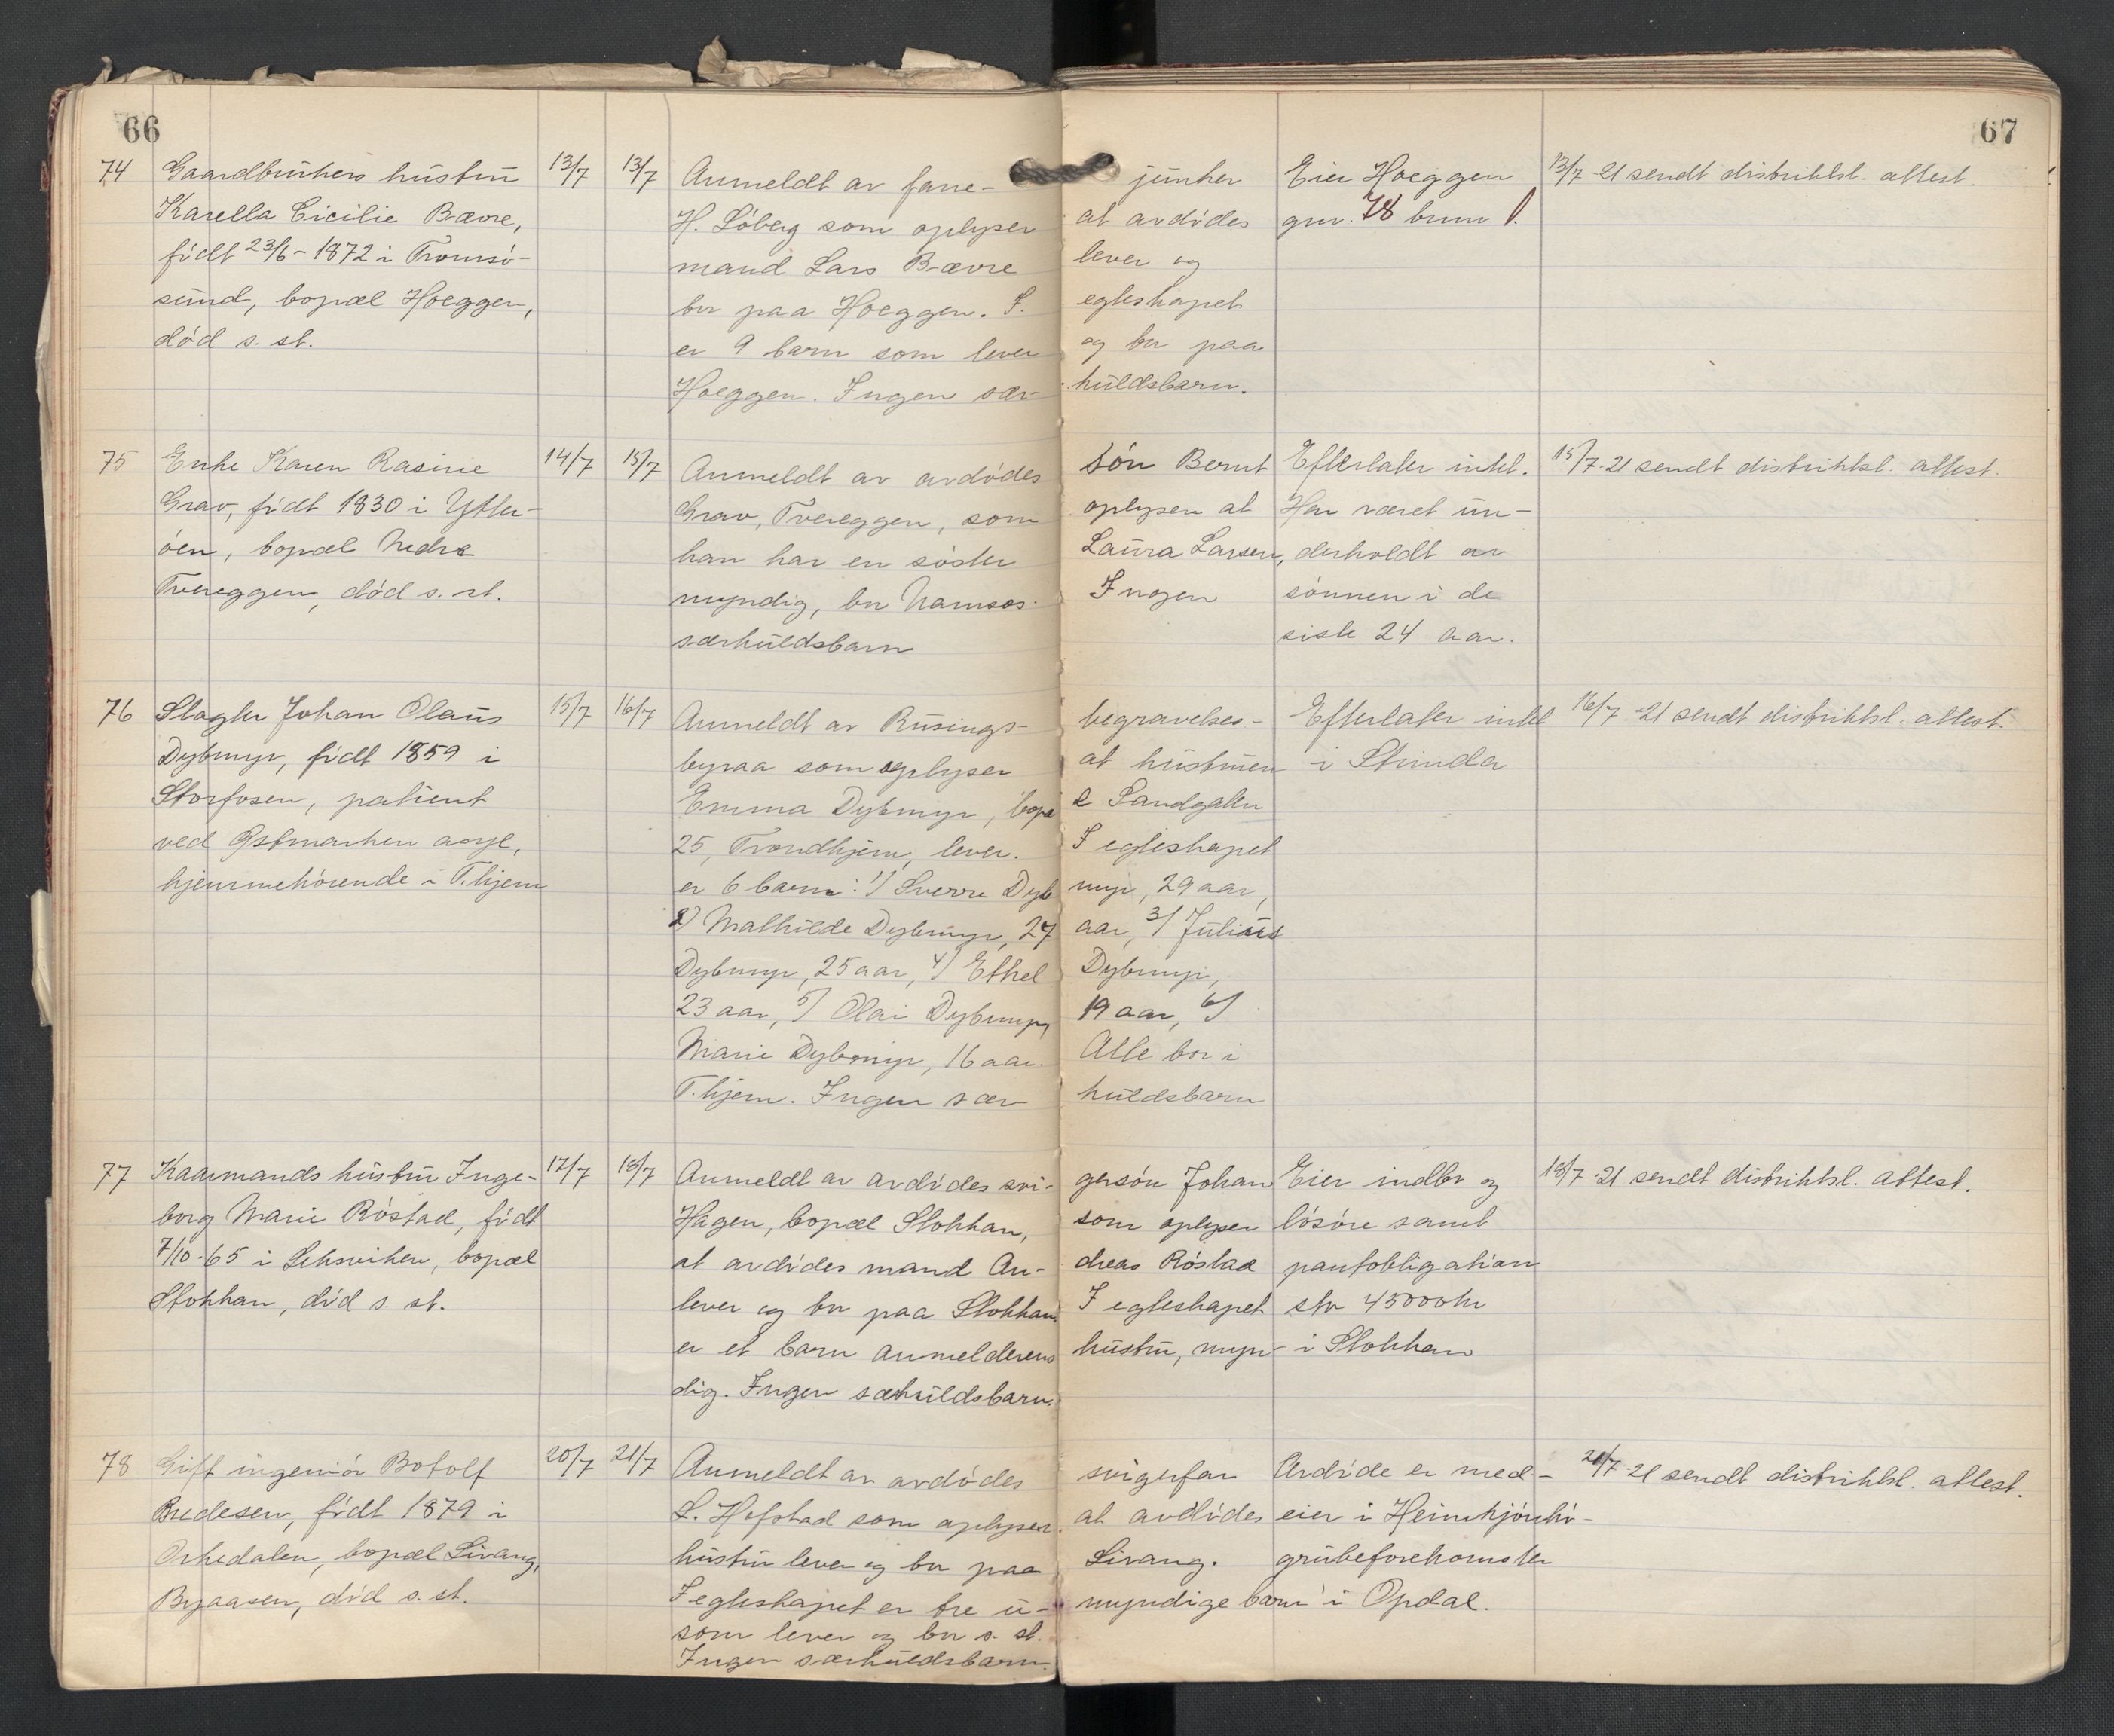 66
67
74 Gaardbrukers hustru 13/7 13/7 Anmeldt av frøe- junker Eier Hoeggen 13/7 21 sendt distriktsl. attest.
Karella Cicilie Bævre, H. Løberg som oplyser at avdødes gnr. 78 brnr 1.
født 23/6-1872 i Tromsø- mand Lars Bævre lever og
sund, bopæl Hoeggen, bor paa Hoeggen. I egteskapet
død s. st. er 9 barn som lever og bor paa
Hoeggen. Ingen sær- kuldsbarn.
75 Enke Karen Rasine 14/7 15/7 Anmeldt av avdødes søn Bernt Efterlater intet. 15/7-21 sendt distriktsl. attest.
Grav, født 1830 i Ytter- Grav, Tvereggen, som oplyser at Har været un-
øen, bopæl Nedre han har en søster Laura Larsen, derholdt av
Tvereggen, død s. st. myndig, bor Namsos. Ingen sønnen i de
særkuldsbarn siste 24 aar.
76 Slagter Johan Olaus 15/7 16/7 Anmeldt av Rusings- begravelses- Efterlater intet 16/7-21 sendt distriktsl. attest.
Dybmyr, født 1859 i byraa som oplyser at hustruen i Strinda
Storfosen, patient Emma Dybmyr, bopæ l Sandgaten
ved Østmarken asyl, 25, Trondhjem, lever. I egteskapet
hjemmehørende i T.hjem er 6 barn: 1) Sverre Dyb myr, 29 aar,
2) Mathilde Dybmyr, 27 aar, 3) Julius
Dybmyr, 25 aar, 4) Ethel Dybmyr,
23 aar, 5) Olai Dybmyr, 19 aar, 6)
Marie Dybmyr, 16 aar. Alle bor i
T.hjem. Ingen sær kuldsbarn
77 Kaarmands hustru Inge- 17/7 18/7 Anmeldt av avdødes svi- gersøn Johan Eier indbo og 18/7-21 sendt distriktsl. attest.
borg Marie Røstad, født Hagen, bopæl Stokkan, som oplyser løsøre samt
7/10-65 i Leksviken, bopæl at avdødes mand An- dreas Røstad pantobligation
Stokkan, død s. st. lever og bor paa Stokkan. I egteskapet stor 45000 kr
er et barn anmelderens hustru, myn- i Stokkan
dig. Ingen særkuldsbarn.
78 Gift ingeniør Botolf 20/7 21/7 Anmeldt av avdødes svigerfar Avdøde er med- 21/7-21 sendt distriktsl. attest.
Bredesen, født 1879 i L. Hofstad som oplyser at avdødes eier i
Orkedalen, bopæl Livang, hustru lever og bor paa Livang. grubeforekomster
Byaasen, død s. st. I egteskapet er tre u- myndige barn i Opdal.
som lever og bor s. st.
Ingen særkuldsbarn.